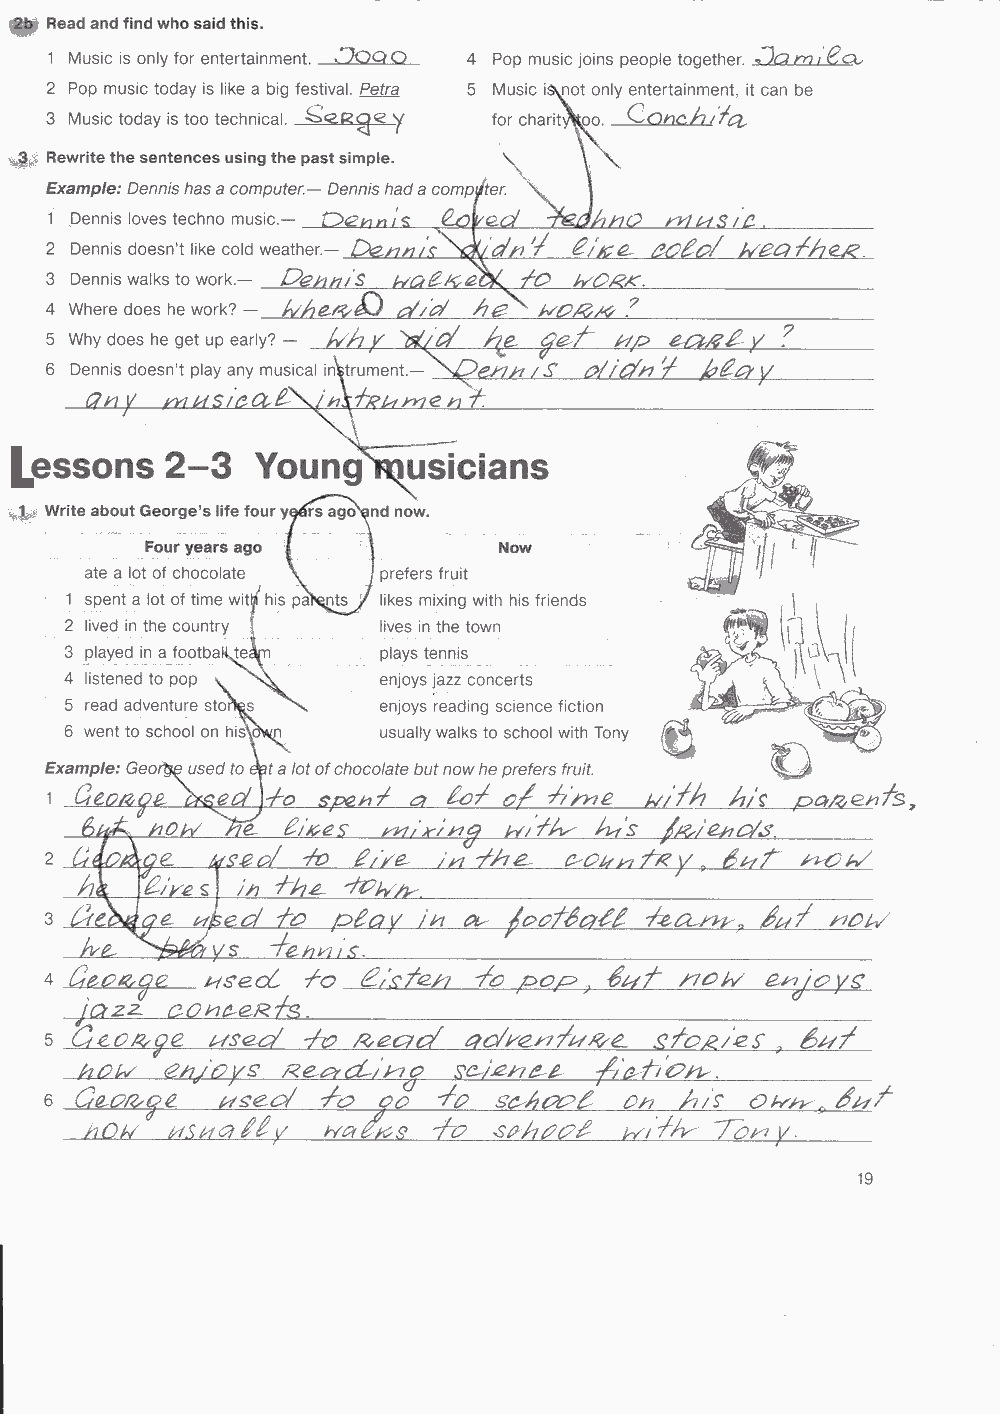 2b Read and find who said this.
1 Music is only for entertainment. Joao
4 Pop music joins people together. Jamila
2 Pop music today is like a big festival. Petra
5 Music is not only entertainment, it can be
3 Music today is too technical. Sergey
for charity too. Conchita
3 Rewrite the sentences using the past simple.
Example: Dennis has a computer.— Dennis had a computer.
1 Dennis loves techno music.— Dennis loved techno music.
2 Dennis doesn't like cold weather.— Dennis didn't like cold weather.
3 Dennis walks to work.— Dennis walked to work.
4 Where does he work? — Where did he work?
5 Why does he get up early? — Why did he get up early?
6 Dennis doesn't play any musical instrument.— Dennis didn't play
any musical instrument.
Lessons 2–3 Young musicians
1 Write about George's life four years ago and now.
Four years ago Now
ate a lot of chocolate prefers fruit
1 spent a lot of time with his parents likes mixing with his friends
2 lived in the country lives in the town
3 played in a football team plays tennis
4 listened to pop enjoys jazz concerts
5 read adventure stories enjoys reading science fiction
6 went to school on his own usually walks to school with Tony
Example: George used to eat a lot of chocolate but now he prefers fruit.
1 George used to spent a lot of time with his parents,
but now he likes mixing with his friends.
2 George used to live in the country, but now
he lives in the town.
3 George used to play in a football team, but now
he plays tennis.
4 George used to listen to pop, but now enjoys
jazz concerts.
5 George used to read adventure stories, but
now enjoys reading science fiction.
6 George used to go to school on his own, but
now usually walks to school with Tony.
19